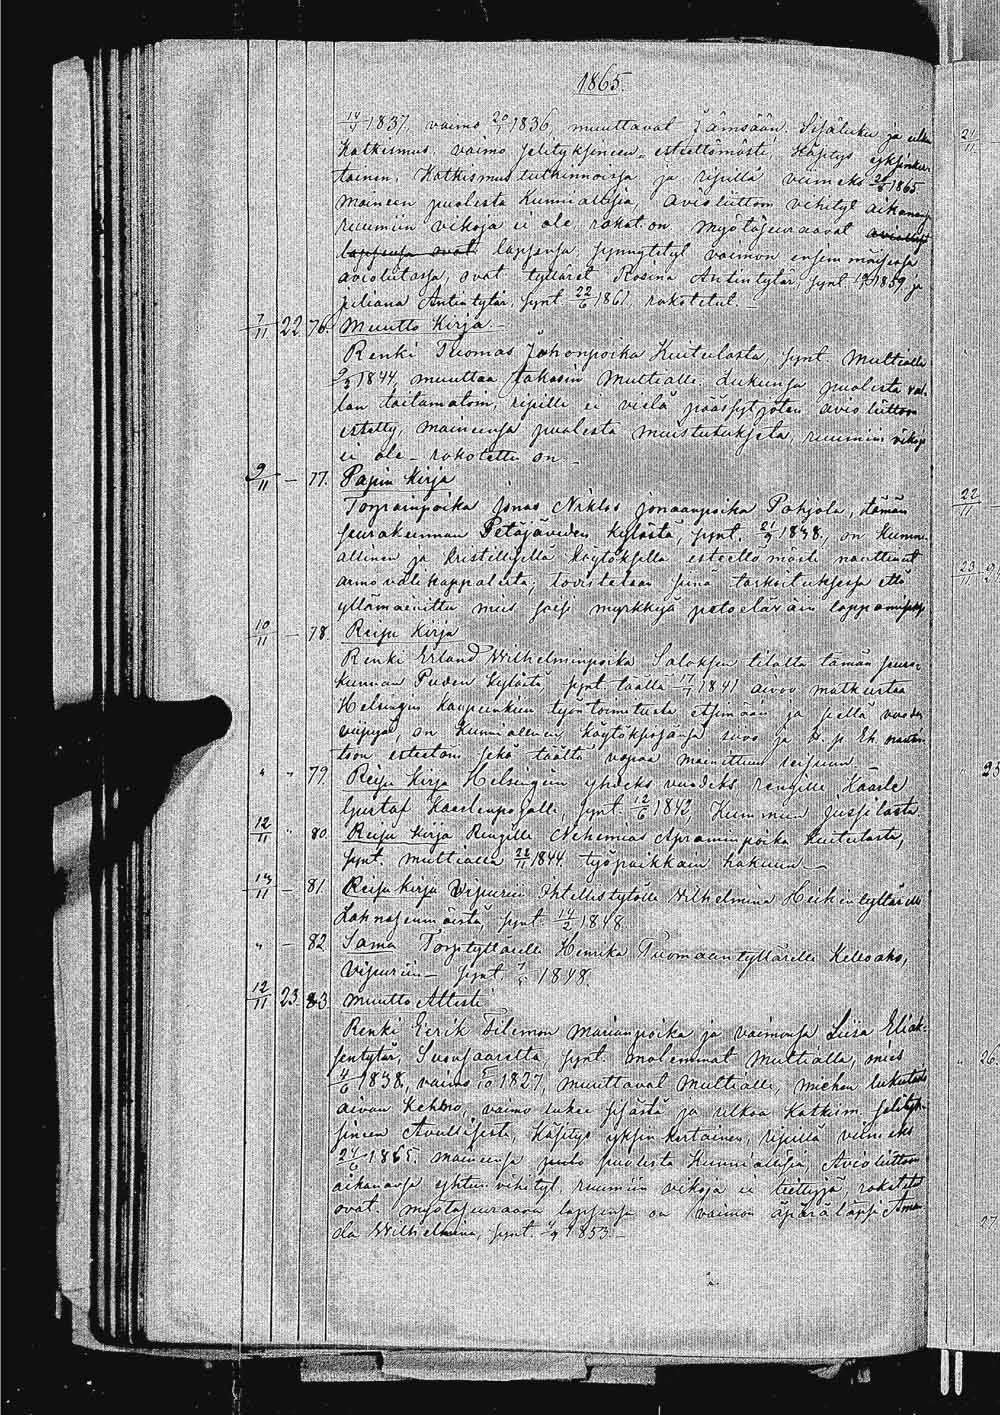 1865.
14/4 1837, vaimo 20/1 1836, muuttavat Jämsään. Sisäluku ja ulko
Katkesmus, vaimo selityksineen esteettömästi, Käsitys yksinker-
tainen. Katkesmus tutkinnoissa ja ripillä viimeks 1865
maineen puolesta Kunniallisia, avioliittoon vihityt aikanansa
ruumiin vikoja ei ole, rokot. on. Myötäseuraavat
lapsensa ovat lapsensa synnytetyt vaimon ensimmäisessä
avioliitossa, ovat tyttäret Rosina Antintytär, synt. 1859, ja
Juliana Antintytär, synt. 22/6 1861, rokotetut.
7/11 22. 76. Muutto Kirja.
Renki Tuomas Juhonpoika Kuitulasta, synt. Multialla
1844, muuttaa takasin Multialle. Lukunsa puolesta val-
lan taitamatoin, ripille ei vielä päässyt joten avioliitton
estetty, maineensa puolesta muistutuksetta, ruumiin vikoja
ei ole - rokotettu on -
9/11 — 77. Papin Kirja
Torpainpoika Jonas Niklas Jonaanpoika Pohjola, tämän
seurakunnan Petäjäveden kylästä, synt. 21/9 1838, on Kunni-
allinen ja kristillisellä käytöksellä esteettömästi nauttinut
armovälikappaleita; todistetaan siinä tarkoituksessa että
yllämainittu mies saisi myrkkyä petoeläväin tappamiseksi
10/11 — 78. Reisu Kirja
Renki Erland Wilhelminpoika Saloksen tilalta tämän seura-
kunnan Puden kylästä synt. täällä 17/1 1841 aivoo matkustaa
Helsingin kaupunkiin työn toimitusta etsimään ja siellä vuoden
viipyä, on Kunniallinen käytöksessänsä luvo ja H. p. Eh. nautin-
toon esteetöin sekä täältä vapaa mainittuun reisuun. —
" " 79. Reisu Kirja Helsingiin yhdeks vuodeks rengille Kaarle
Gustaf Kaarlenpojalle, synt. 12/6 1842, Kummun Jussilasta
12/11 " 80. Reisu Kirja Rengille Nehemias Apraminpoika Kuitulasta,
synt. Multialla 22/11 1844 työpaikkain hakuun —
13/11 — 81. Reisu kirja Vipuriin Ihtellistytölle Wilhelmina Heikintyttärelle
Lahnajenmäistä, synt. 14/2 1848.
" — 82. Sama Torp.tyttärelle Henrika Tuomaantyttärelle Kelloaho,
Vipuriin — synt. 1848.
12/11 23. 83. Muutto Attesti
Renki Eerik Filemon Marianpoika ja vaimonsa Liisa Eliak-
sentytär, Suonsaaretta, synt. molemmat Multialla, mies
4/6 1838, vaimo 1827, muuttavat Multialle, miehen lukutaito
aivan kehno, vaimo lukee sisästä ja ulkoa Katkism. selityk-
sineen Avullisesti, Käsitys yksinkertainen, ripillä viimeks
24/6 1865. maineensa puolesta Kunniallisia, Avioliittoon
aikanansa yhteen vihityt ruumiin vikoja ei tiettyjä, rokotetut
ovat. Myötäseuraava lapsensa on vaimon äpärälapsi Aman-
da Wilhelmina, synt. 4/9 1853. —